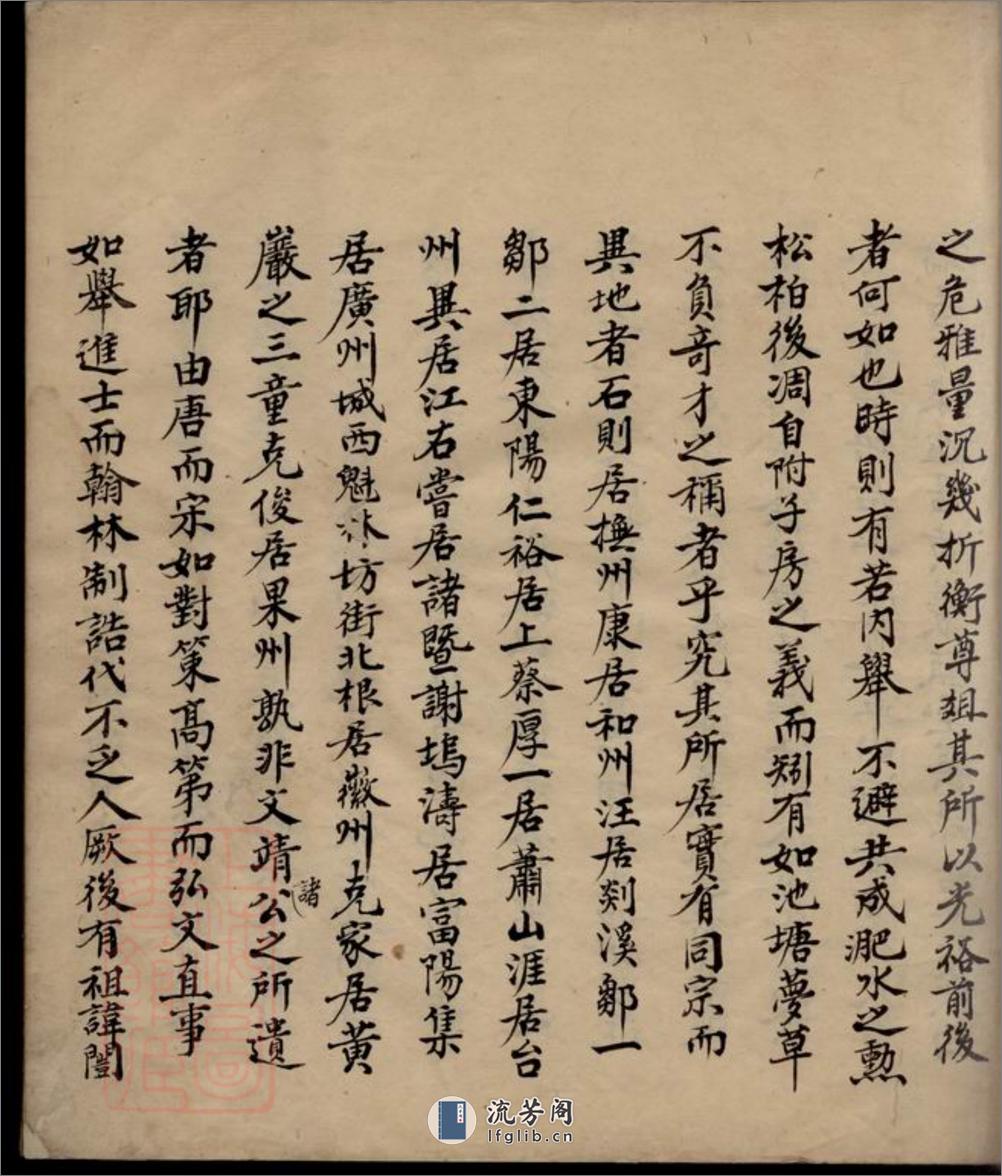 之危雅量沉幾折衡尊爼其所以光裕前後
者何如也時則有若内舉不避共成淝水之勲
松柏後凋自附子房之義而矧有如池塘夢草
不負奇才之稱者乎究其所居實有同宗而
異地者石則居撫州康居和州汪居剡溪鄒一
鄒二居東陽仁裕居上蔡厚一居蕭山涯居台
州異居江右嘗居諸暨謝塢濤居富陽集
居廣州城西魁坊街北根居徽州克家居黄
巖之三童克俊居果州孰非文靖公諸之所遺
者耶由唐而宋如對策髙第而弘文直事
如舉進士而翰林制誥代不乏人厥後有祖諱闓
流芳阁
lfglib.cn